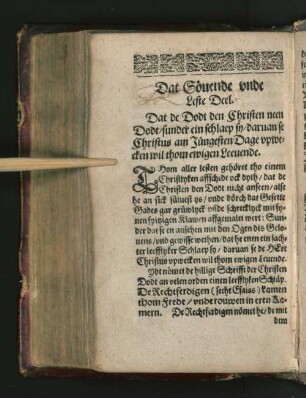 Dat Söuende vnde
Leste Deel.
Dat de Dodt den Christen neen
Dodt / sunder ein schlaep sy / daruan se
Christus am Jüngesten Dage vpwe-
cken wil thom ewigen Leeuende.
THom aller lesten gehöret tho einem
Christlyken affscheide ock dyth / dat de
Christen den Dodt nicht anseen / alse
he an sick süluest ys / vnde dörch dat Gesette
Gades gar grüwlyck vnde schrecklyck mit sy-
nen spitzigen Klawen affgemalet wert: Sun-
der dat se en anseen mit den Ogen des Gelo-
uens / vnd gewisse wethen / dat he em ein sach-
ter leefflyker Schlaep sy / daruan se de HEre
Christus vpwecken wil thom ewigen Leuende.
Ydt nömet de hillige Schrifft der Christen
Dodt an velen orden einen leefflyken Schlap.
De Rechtferdigen (secht Esaias) kamen
thom Frede / vnde rouwen in eren Ka-
mern. De Rechtferdigen nömet he / de mit
dem